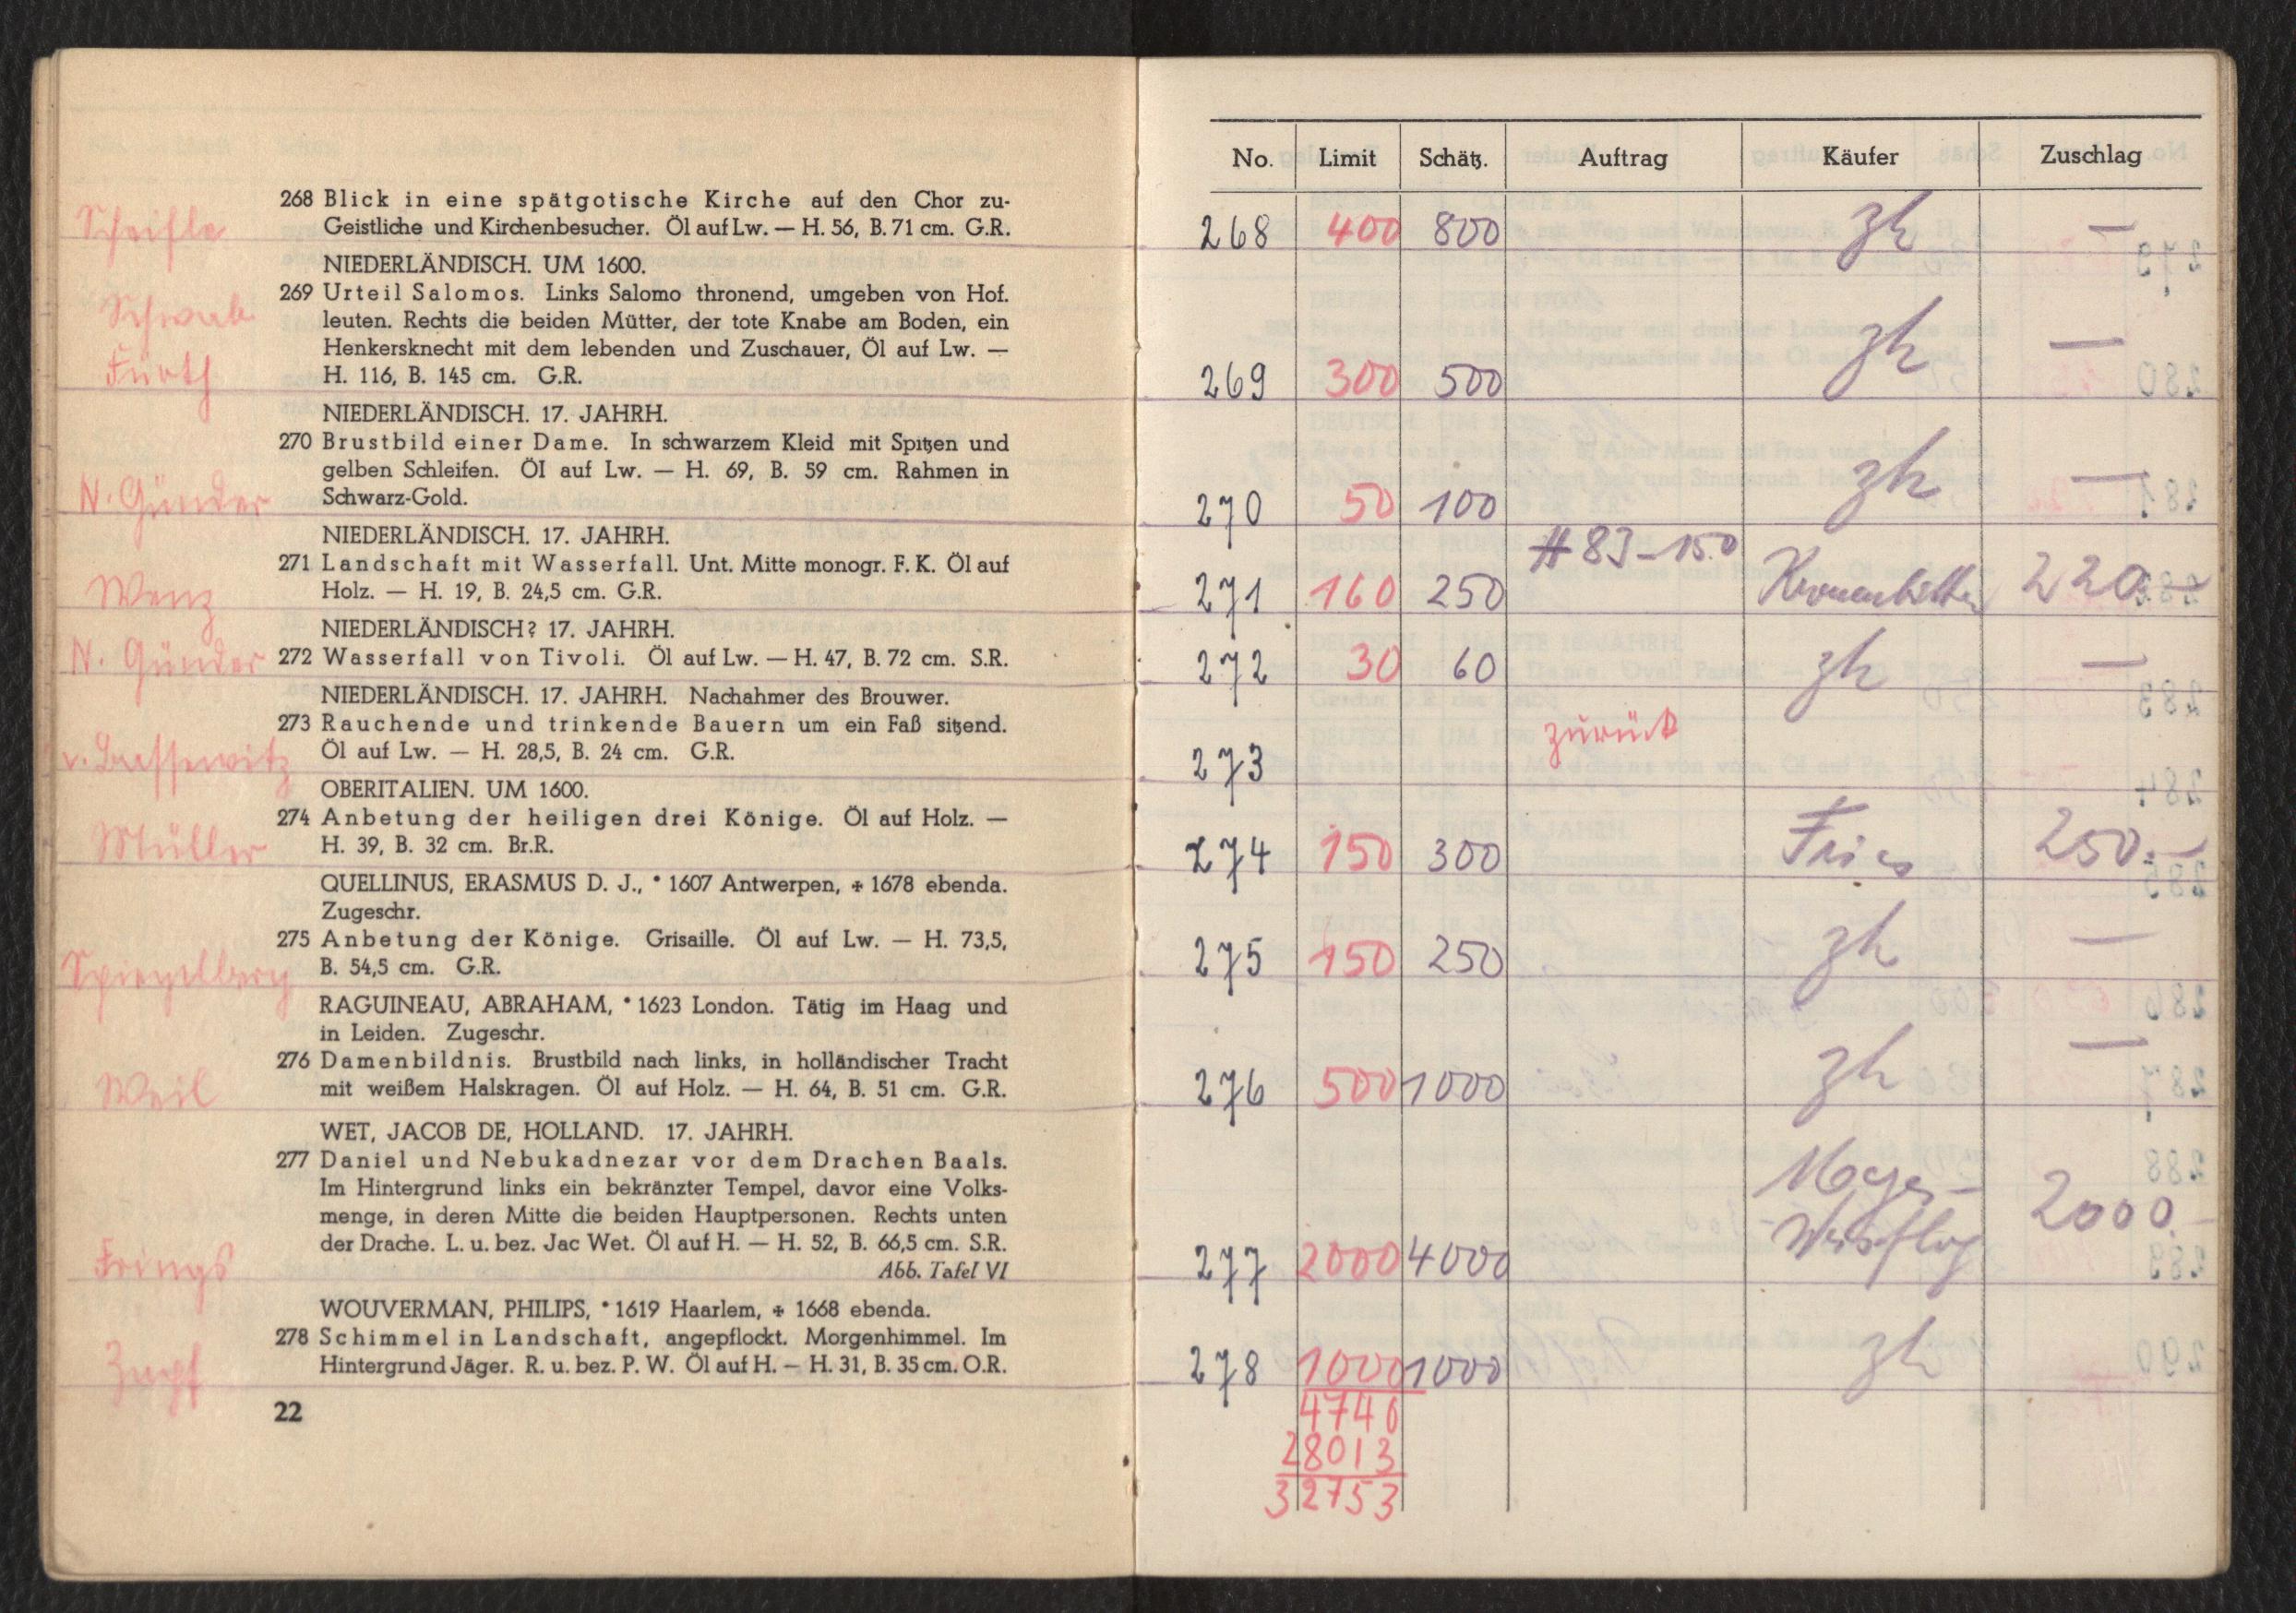 268 Blick in eine spätgotische Kirche auf den Chor zu-
Geistliche und Kirchenbesucher. Öl auf Lw. — H. 56, B. 71 cm. G.R.
NIEDERLÄNDISCH. UM 1600.
Schwab
269 Urteil Salomos. Links Salomo thronend, umgeben von Hof.
leuten. Rechts die beiden Mütter, der tote Knabe am Boden, ein
Henkersknecht mit dem lebenden und Zuschauer, Öl auf Lw. —
Fürth
H. 116, B. 145 cm. G.R.
NIEDERLÄNDISCH. 17. JAHRH.
270 Brustbild einer Dame. In schwarzem Kleid mit Spitzen und
gelben Schleifen. Öl auf Lw. — H. 69, B. 59 cm. Rahmen in
N. Günder
Schwarz-Gold.
NIEDERLÄNDISCH. 17. JAHRH.
271 Landschaft mit Wasserfall. Unt. Mitte monogr. F. K. Öl auf
Wenz
Holz. — H. 19, B. 24,5 cm. G.R.
NIEDERLÄNDISCH? 17. JAHRH.
N. Günder
272 Wasserfall von Tivoli. Öl auf Lw. — H. 47, B. 72 cm. S.R.
NIEDERLÄNDISCH. 17. JAHRH. Nachahmer des Brouwer.
273 Rauchende und trinkende Bauern um ein Faß sitzend.
v. Bassewitz
Öl auf Lw. — H. 28,5, B. 24 cm. G.R.
OBERITALIEN. UM 1600.
274 Anbetung der heiligen drei Könige. Öl auf Holz. —
Müller
H. 39, B. 32 cm. Br.R.
QUELLINUS, ERASMUS D. J., * 1607 Antwerpen, + 1678 ebenda.
Zugeschr.
275 Anbetung der Könige. Grisaille. Öl auf Lw. — H. 73,5,
Spiegelberg
B. 54,5 cm. G.R.
RAGUINEAU, ABRAHAM, * 1623 London. Tätig im Haag und
in Leiden. Zugeschr.
276 Damenbildnis. Brustbild nach links, in holländischer Tracht
Weil
mit weißem Halskragen. Öl auf Holz. — H. 64, B. 51 cm. G.R.
WET, JACOB DE, HOLLAND. 17. JAHRH.
277 Daniel und Nebukadnezar vor dem Drachen Baals.
Im Hintergrund links ein bekränzter Tempel, davor eine Volks-
menge, in deren Mitte die beiden Hauptpersonen. Rechts unten
der Drache. L. u. bez. Jac Wet. Öl auf H. — H. 52, B. 66,5 cm. S.R.
Frings
Abb. Tafel VI
WOUVERMAN, PHILIPS, * 1619 Haarlem, + 1668 ebenda.
278 Schimmel in Landschaft, angepflockt. Morgenhimmel. Im
Zapf
Hintergrund Jäger. R. u. bez. P. W. Öl auf H. — H. 31, B. 35 cm. O.R.
22
No. Limit Schätz. Auftrag Käufer Zuschlag
268 400 800 zh —
269 300 500 zh —
270 50 100 zh —
271 160 250 # 83 – 150 220.–
272 30 60 zh —
273 zurück
274 150 300 Fries 250.–
275 150 250 zh —
276 500 1000 zh —
277 2000 4000 Meyer- 2000.–
Weisflog
278 1000 1000 zh
4740
28013
32753